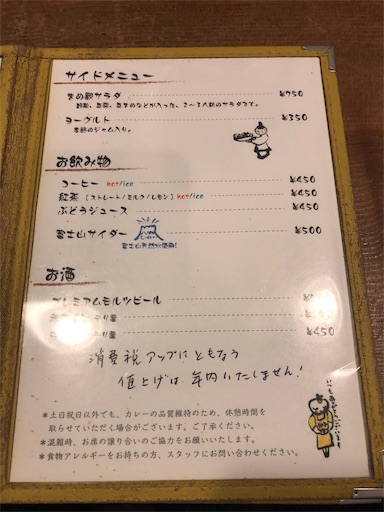 サイドメニュー
まめ蔵サラダ ¥750
ヨーグルト ¥350
季節のジャム入り。
お飲み物
コーヒー hot/ice ¥450
紅茶 [ストレート/ミルク/レモン] hot/ice ¥450
ぶどうジュース ¥450
富士山サイダー ¥500
富士山天然水使用!
お酒
プレミアムモルツビール
¥450
消費税アップにともなう
値上げは年内いたしません!
*土日祝日以外でも、カレーの品質維持のため、休憩時間を
取らせていただく場合がございます。ご了承ください。
*混雑時、お席の譲り合いのご協力をお願いいたします。
*食物アレルギーをお持ちの方、スタッフにお問い合わせください。